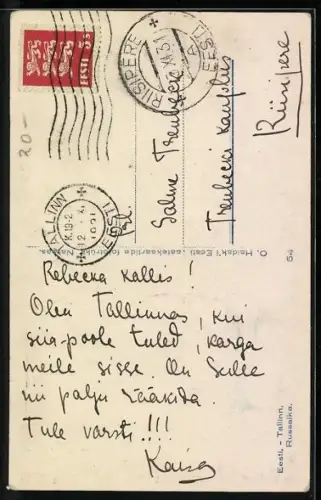 EESTI 5 S
RIISIPERE
EESTI
TALLINN
EESTI
20-
Prl.
Salme Treubeck
Treubecki kauplus
Riisipere
O. Haidak'i Eesti saatekaartide fototrükk, Narvas.
54
Rebecka kallis!
Olen Tallinnas, kui
siia-poole tuled, karga
meile sisse. On Sulle
nii palju rääkida.
Tule varsti!!!
Eesti. - Tallinn.
Russalka.